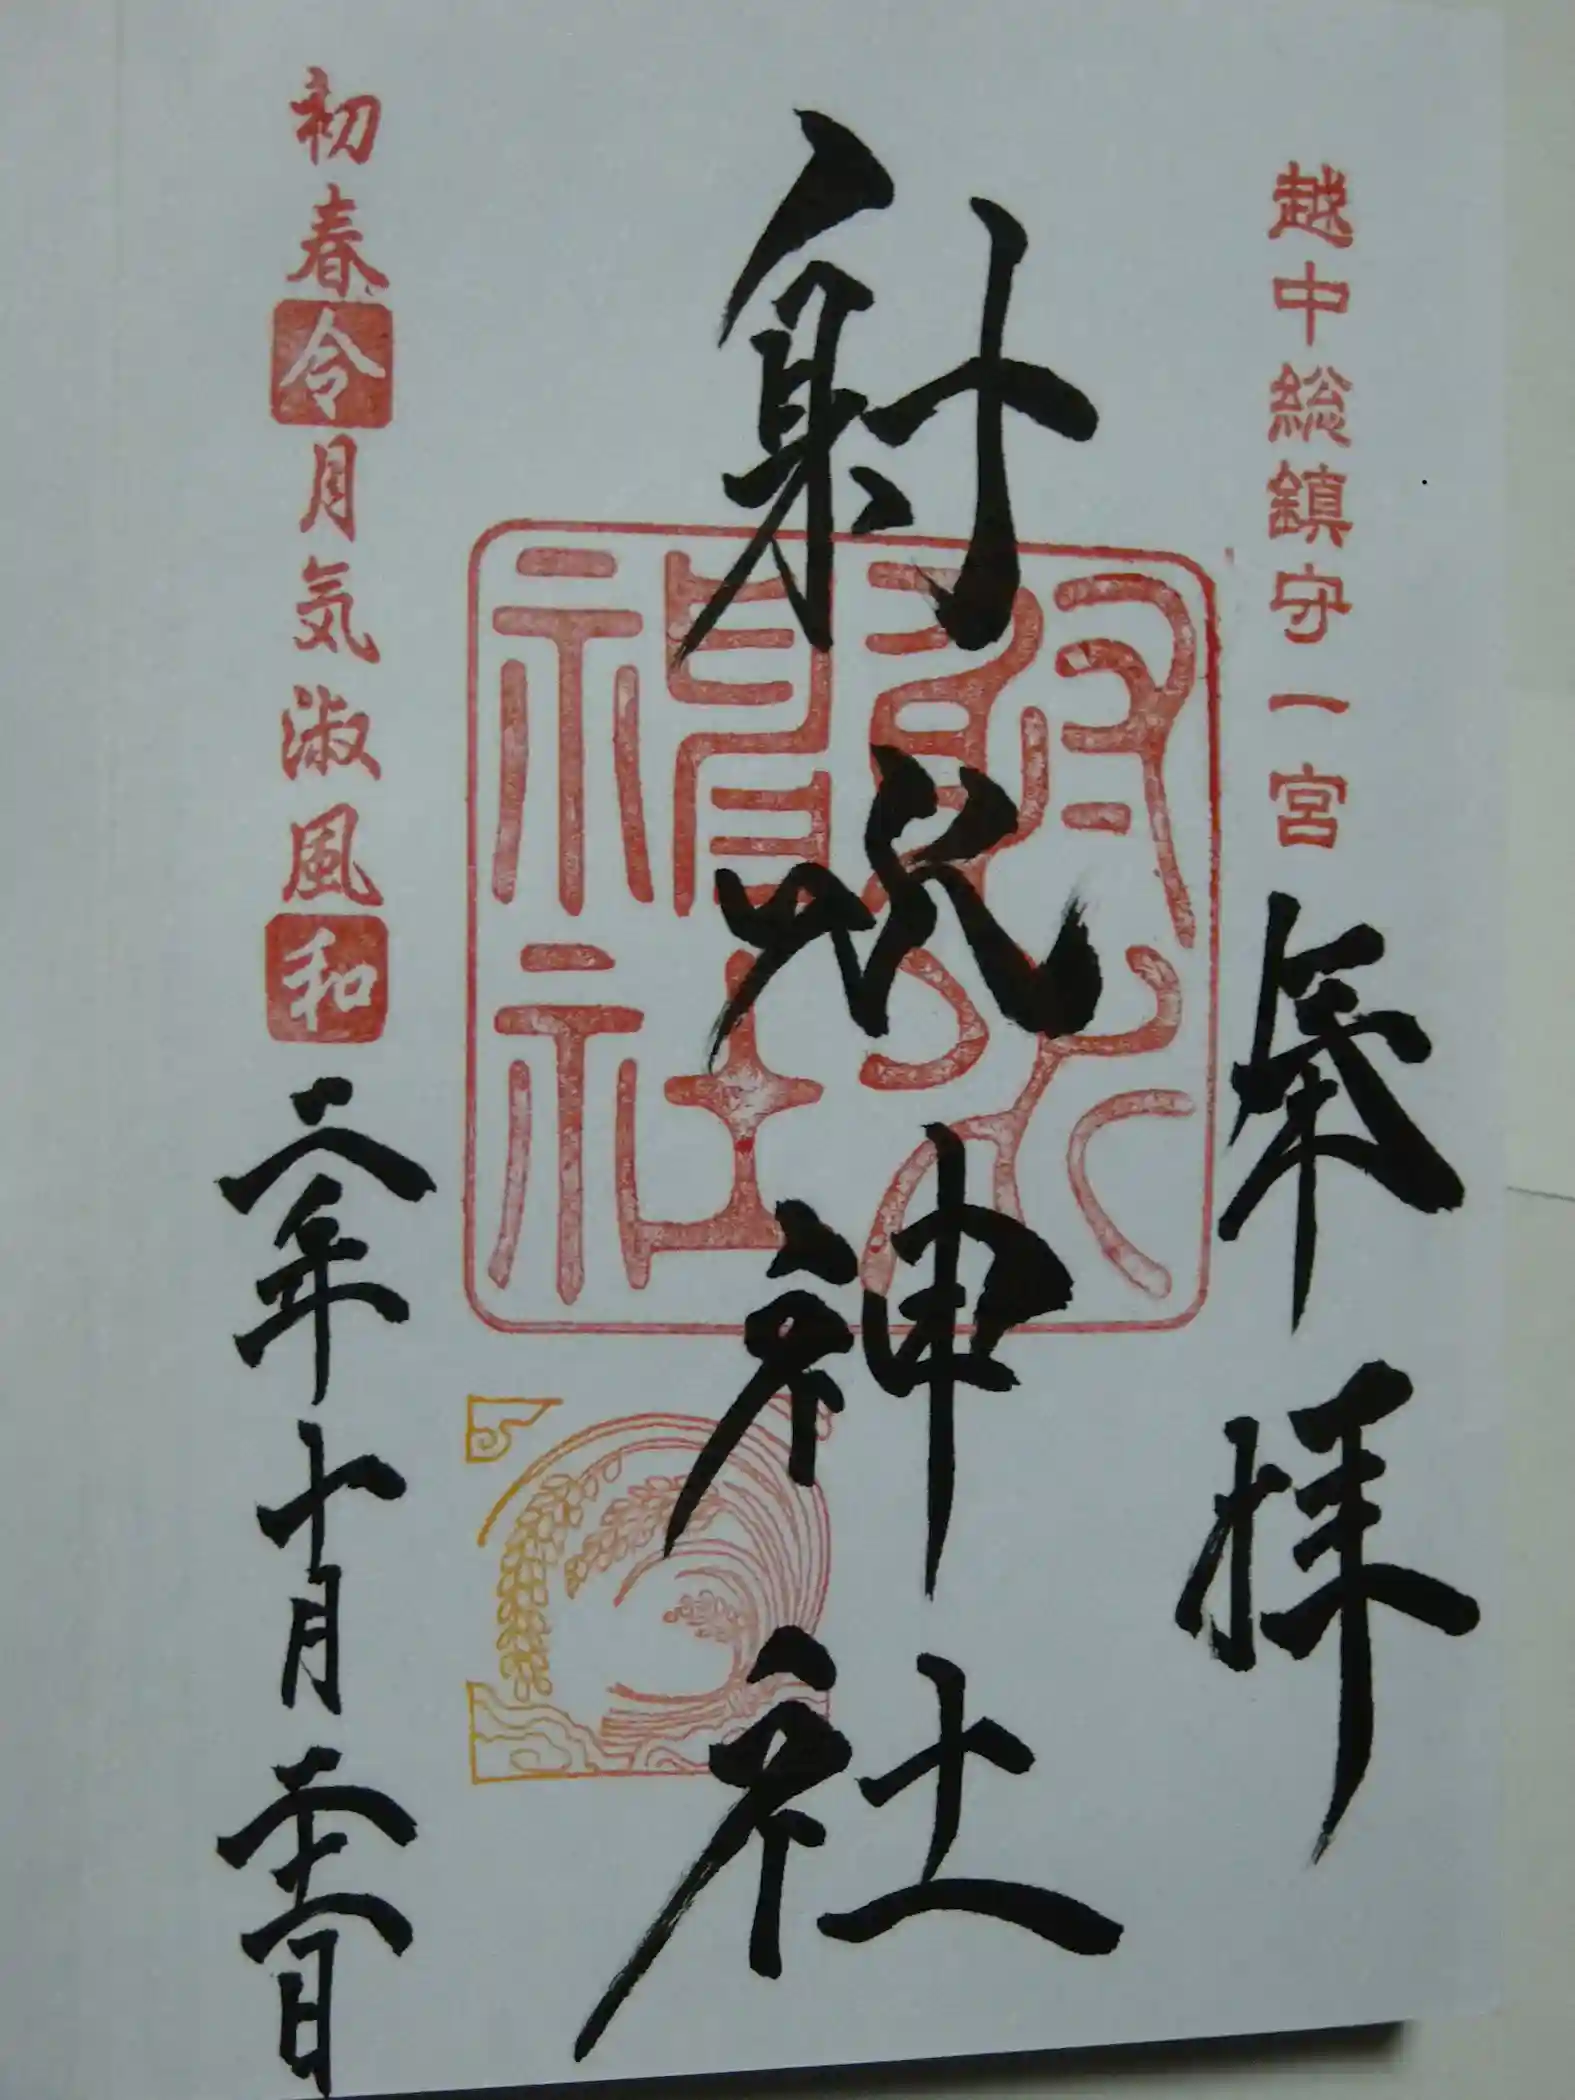 越中総鎮守一宮
奉拝
射水神社
射水
神社
初春令月気淑風和
二年十月二十日